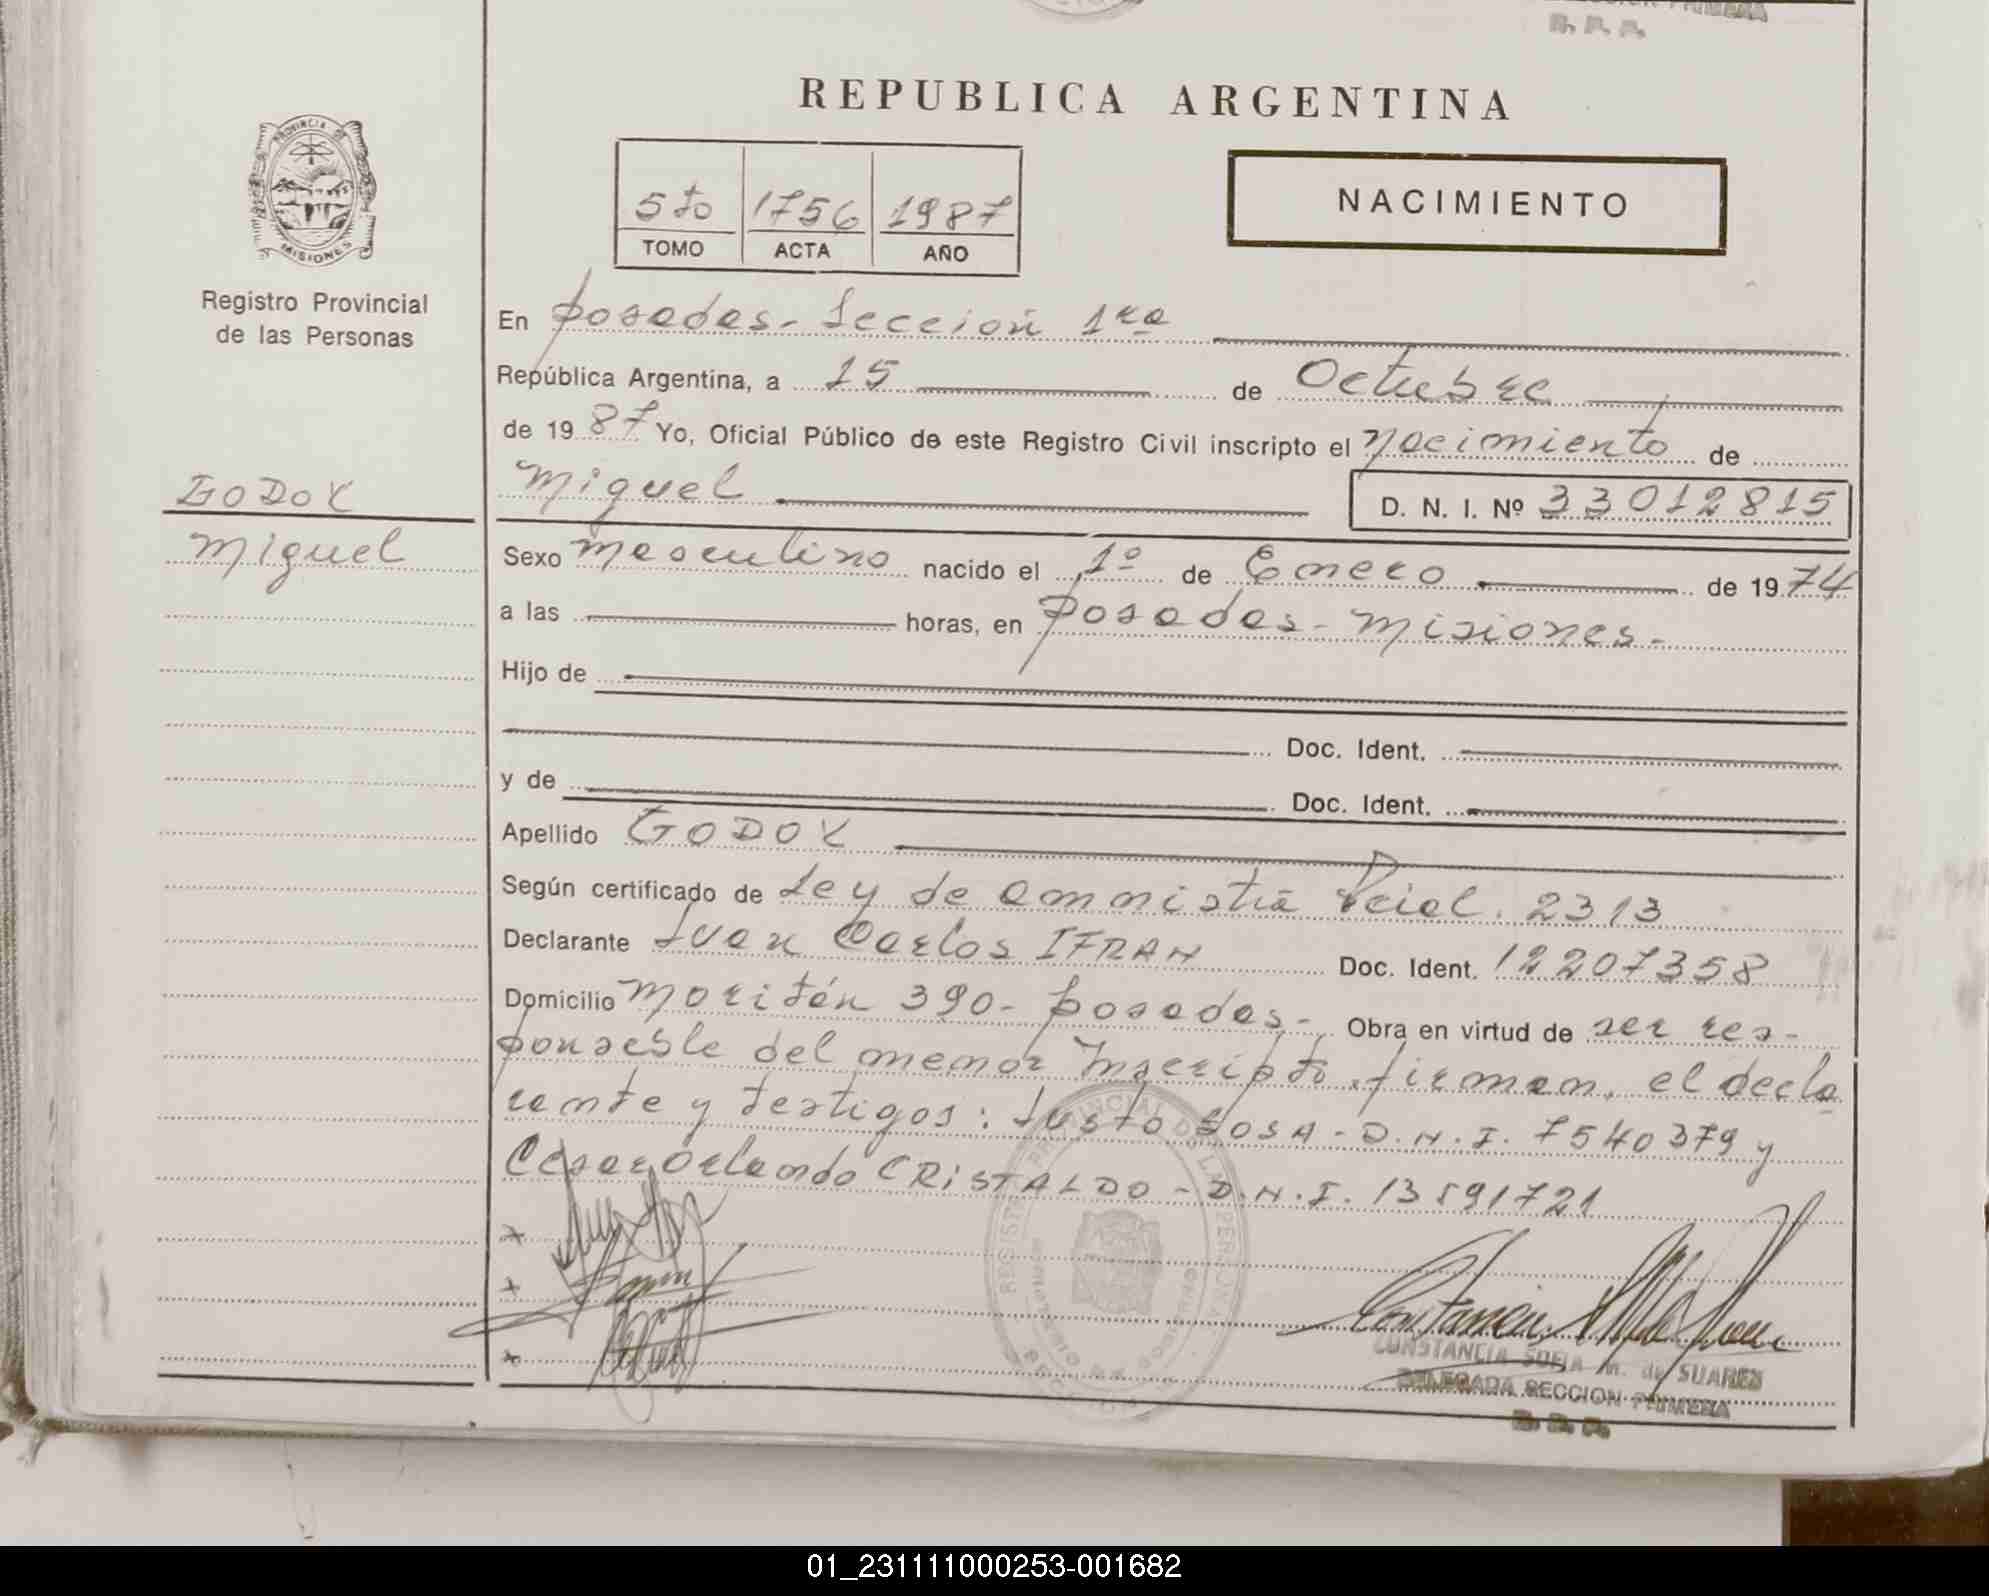 R. P. P.
REPUBLICA ARGENTINA
PROVINCIA DE MISIONES
5to 1756 1987
TOMO ACTA AÑO
NACIMIENTO
Registro Provincial
de las Personas
En Posadas - Sección 1ra
República Argentina, a 15 de Octubre
de 1987 Yo, Oficial Público de este Registro Civil inscripto el Nacimiento de
GODOY
Miguel D. N. I. Nº 33012815
Miguel
Sexo masculino nacido el 1º de Enero de 1974
a las horas, en Posadas - Misiones -
Hijo de
Doc. Ident.
y de Doc. Ident.
Apellido GODOY
Según certificado de Ley de amnistia Pcial. 2313
Declarante Juan Carlos IFRAN Doc. Ident. 12207358
Domicilio 390 - Posadas - Obra en virtud de ser res-
ponsable del menor Inscripto. firman, el decla
rante y testigos: Justo SOSA - D.N.I. 7540379 y
Cesar Orlando CRISTALDO - D.N.I. 13891721
CONSTANCIA SOFIA M. de SUAREZ
DELEGADA SECCION PRIMERA
R. P. P.
01_231111000253-001682